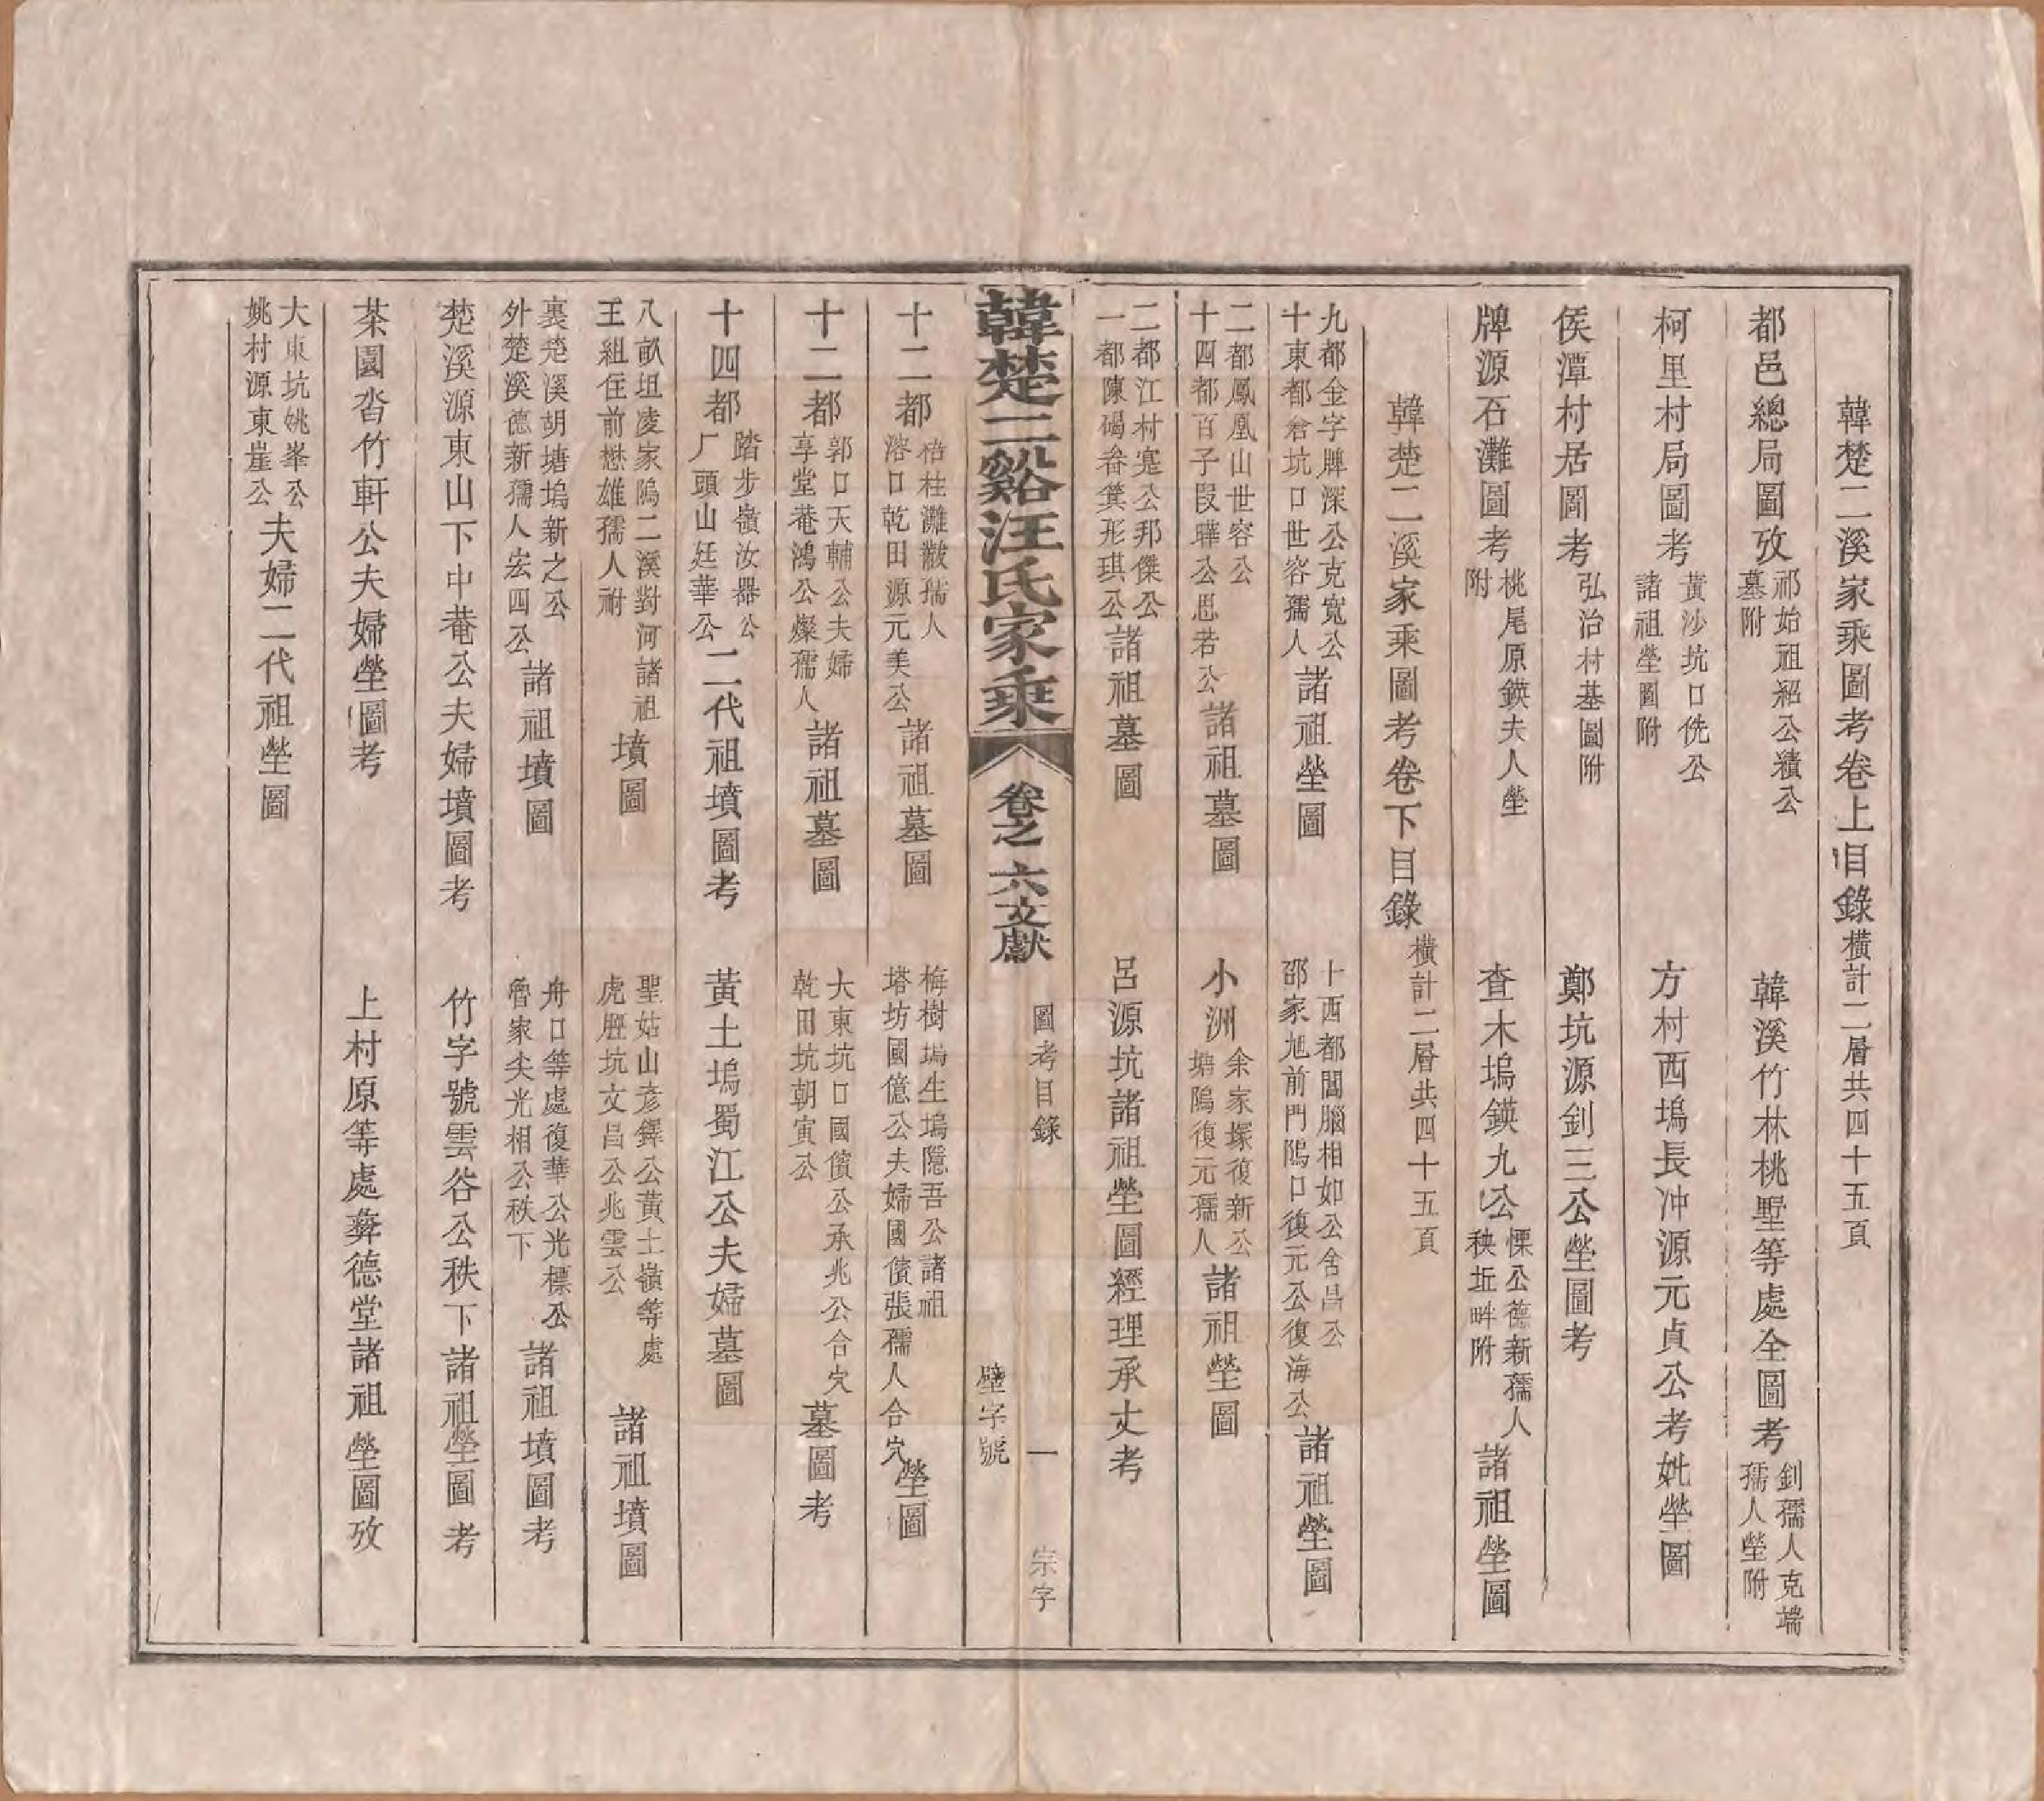 韓楚二溪家乘圖考卷上目錄 橫計二層共四十五頁
都邑總局圖攷 祁始祖紹公積公墓附
韓溪竹林桃墅等處全圖考 釗孺人克端孺人塋附
柯里村局圖考 黃沙坑口侁公諸祖塋圖附
方村西塢長冲源元貞公考妣塋圖
侯潭村居圖考 弘治村基圖附
鄭坑源釗三公塋圖考
牌源石灘圖考 桃尾原鍈夫人塋附
查木塢鍈九公 慄公德新孺人秧坵畔附 諸祖塋圖
韓楚二溪家乘圖考卷下目錄 橫計二層共四十五頁
九都金字牌深公克寬公十東都倉坑口世容孺人 諸祖塋圖
十西都閶腦相如公舍昌公邵家旭前門塢口復元公復海公 諸祖塋圖
二都鳳凰山世容公十四都百子段曄公思若公 諸祖墓圖
小洲 余家塚復新公塘塢復元孺人 諸祖塋圖
二都江村寔公邦傑公一都陳碣畚箕形琪公 諸祖墓圖
呂源坑諸祖塋圖經理承丈考
韓楚二谿汪氏家乘 卷之六文獻 圖考目錄 一 宗字 壁字號
十二都 桰柱灘黻孺人溶口乾田源元美公 諸祖墓圖
梅樹塢生塢隱吾公諸祖塔坊國億公夫婦國儐張孺人合穴 塋圖
十二都 郭口天輔公夫婦享堂菴鴻公燦孺人 諸祖墓圖
大東坑口國儐公承兆公合穴乾田坑朝寅公 墓圖考
十四都 踏步嶺汝器公厂頭山廷華公 二代祖墳圖考
黃土塢蜀江公夫婦墓圖
八畝坦凌家塢二溪對河諸祖王組住前懋雄孺人祔 墳圖
聖姑山彥鐸公黃土嶺等處虎壓坑文昌公兆雲公 諸祖墳圖
裏楚溪胡塘塢新之公外楚溪德新孺人宏四公 諸祖墳圖
舟口等處復華公光標公魯家尖光相公秩下 諸祖墳圖考
楚溪源東山下中菴公夫婦墳圖考
竹字號雲谷公秩下諸祖塋圖考
茶園沓竹軒公夫婦塋圖考
上村原等處彝德堂諸祖塋圖攷
大東坑姚峯公姚村源東崖公 夫婦二代祖塋圖